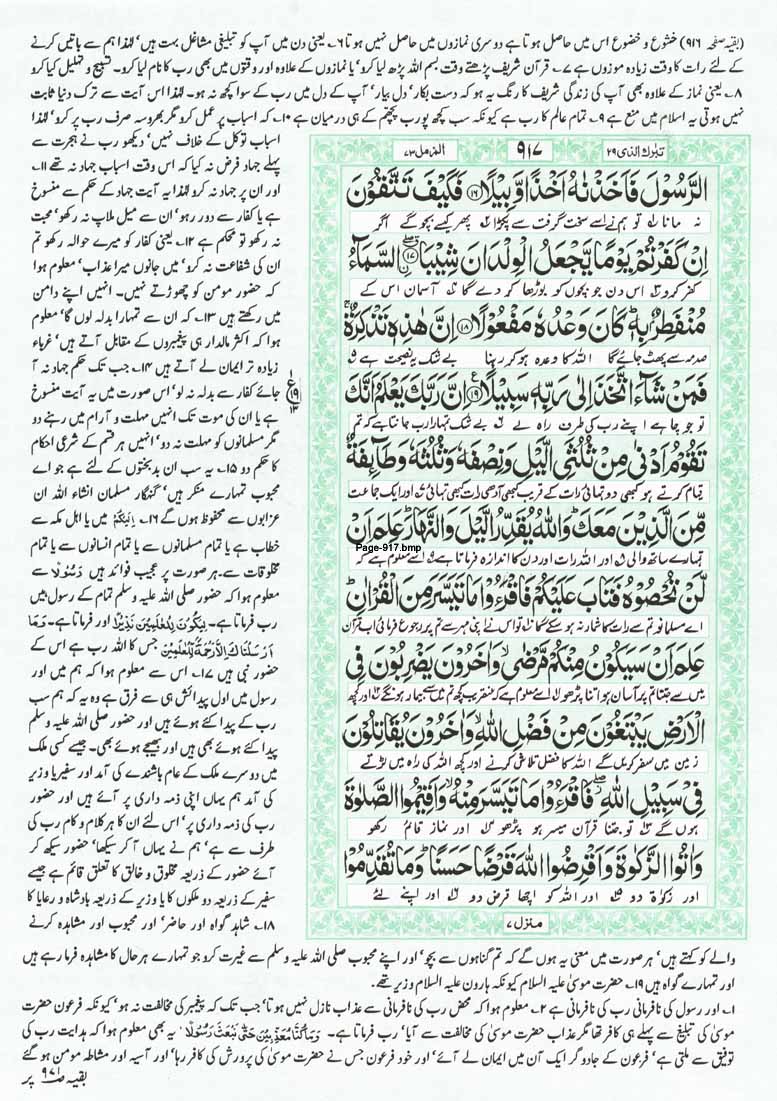 (بقیہ صفحہ ۹۱۶) خشوع و خضوع اس میں حاصل ہوتا ہے دوسری نمازوں میں حاصل نہیں ہوتا ۶؎ یعنی دن میں آپ کو تبلیغی مشاغل بہت ہیں' لہٰذا ہم سے باتیں کرنے
کے لئے رات کا وقت زیادہ موزوں ہے ۷؎ قرآن شریف پڑھتے وقت بسم اللہ پڑھ لیا کرو' یا نمازوں کے علاوہ اور وقتوں میں بھی رب کا نام لیا کرو۔ تسبیح و تہلیل کیا کرو
۸؎ یعنی نماز کے علاوہ بھی آپ کی زندگی شریف کا رنگ یہ ہو کہ دست بکار' دل بیار' آپ کے دل میں رب کے سوا کچھ نہ ہو۔ لہٰذا اس آیت سے ترک دنیا ثابت
نہیں ہوتی یہ اسلام میں منع ہے ۹؎ تمام عالم کا رب ہے کیونکہ سب کچھ پورب پچھم کے ہی درمیان ہے ۱۰؎ کہ اسباب پر عمل کرو مگر بھروسہ صرف رب پر کرو' لہٰذا
اسباب توکل کے خلاف نہیں' دیکھو رب نے ہجرت سے
پہلے جہاد فرض نہ کیا کہ اس وقت اسباب جہاد نہ تھے ۱۱؎
اور ان پر جہاد نہ کرو لہٰذا یہ آیت جہاد کے حکم سے منسوخ
ہے یا کفار سے دور رہو' ان سے میل ملاپ نہ رکھو' محبت
نہ رکھو تو محکم ہے ۱۲؎ یعنی کفار کو میرے حوالہ رکھو تم
ان کی شفاعت نہ کرو' میں جانوں میرا عذاب' معلوم ہوا
کہ حضور مومن کو چھوڑتے نہیں۔ انہیں اپنے دامن
میں رکھتے ہیں ۱۳؎ کہ ان سے تمہارا بدلہ لوں گا' معلوم
ہوا کہ اکثر مالدار ہی پیغمبروں کے مقابل آتے ہیں' غرباء
زیادہ تر ایمان لے آتے ہیں ۱۴؎ جب تک حکم جہاد نہ آ
جائے کفار سے بدلہ نہ لو' اس صورت میں یہ آیت منسوخ
ہے یا ان کی موت تک انہیں مہلت و آرام میں رہنے دو
مگر مسلمانوں کو مہلت نہ دو' انہیں ہر قسم کے شرعی احکام
کا حکم دو ۱۵؎ یہ سب ان بدبختوں کے لئے ہے جو اے
محبوب تمہارے منکر ہیں' گنہگار مسلمان انشاء اللہ ان
عذابوں سے محفوظ ہوں گے ۱۶؎ اِلَیْکُمْ میں یا اہل مکہ سے
خطاب ہے یا تمام مسلمانوں سے یا تمام انسانوں سے یا تمام
مخلوقات سے۔ ہر صورت پر عجیب فوائد ہیں رَسُوْلًا سے
معلوم ہوا کہ حضور صلی اللہ علیہ وسلم تمام کے رسول ہیں
رب فرماتا ہے۔ لِیَکُوْنَ لِلْعٰلَمِیْنَ نَذِیْرًا اور فرماتا ہے۔ وَمَا
اَرْسَلْنٰکَ اِلَّا رَحْمَۃً لِّلْعٰلَمِیْنَ جس کا اللہ رب ہے اس کے
حضور نبی ہیں ۱۷؎ اس سے معلوم ہوا کہ ہم میں اور
رسول میں اول پیدائش ہی سے فرق ہے وہ یہ کہ ہم سب
رب کے پیدا کئے ہوئے ہیں اور حضور صلی اللہ علیہ وسلم
پیدا کئے ہوئے بھی ہیں اور بھیجے ہوئے بھی۔ جیسے کسی ملک
میں دوسرے ملک کے عام باشندے کی آمد اور سفیر یا وزیر
کی آمد ہم یہاں اپنی ذمہ داری پر آئے ہیں اور حضور
رب کی ذمہ داری پر' اس لئے ان کا ہر کلام و کام رب کی
طرف سے ہے' ہم نے یہاں آ کر سیکھا' حضور سیکھ کر
آئے حضور کے ذریعہ مخلوق و خالق کا تعلق قائم ہے جیسے
سفیر کے ذریعہ دو ملکوں کا یا وزیر کے ذریعہ بادشاہ و رعایا کا
۱۸؎ شاہد گواہ اور حاضر' اور محبوب اور مشاہدہ کرنے
تبٰرک الذی ۲۹
۹۱۷
المزمل ۷۳
الرَّسُوْلَ فَاَخَذْنٰهُ اَخْذًا وَّبِيْلًا ﴿۱۶﴾ فَكَيْفَ تَتَّقُوْنَ
نہ مانا تو ہم نے اسے سخت گرفت سے پکڑا پھر کیسے بچو گے اگر
اِنْ كَفَرْتُمْ يَوْمًا يَّجْعَلُ الْوِلْدَانَ شِيْبَا ﴿۱۷﴾ السَّمَآءُ
کفر کرو اس دن جو بچوں کو بوڑھا کر دے گا آسمان اس کے
مُنْفَطِرٌۢ بِهٖ ؕ كَانَ وَعْدُهٗ مَفْعُوْلًا ﴿۱۸﴾ اِنَّ هٰذِهٖ تَذْكِرَةٌ ۚ
صدمہ سے پھٹ جائے گا اللہ کا وعدہ ہو کر رہنا بے شک یہ نصیحت ہے
فَمَنْ شَآءَ اتَّخَذَ اِلٰى رَبِّهٖ سَبِيْلًا ﴿۱۹﴾ اِنَّ رَبَّكَ يَعْلَمُ اَنَّكَ
تو جو چاہے اپنے رب کی طرف راہ لے بے شک تمہارا رب جانتا ہے کہ تم
تَقُوْمُ اَدْنٰى مِنْ ثُلُثَيِ الَّيْلِ وَنِصْفَهٗ وَثُلُثَهٗ وَطَآئِفَةٌ
قیام کرتے ہو کبھی دو تہائی رات کے قریب کبھی آدھی رات کبھی تہائی اور ایک جماعت
مِّنَ الَّذِيْنَ مَعَكَ ؕ وَاللّٰهُ يُقَدِّرُ الَّيْلَ وَالنَّهَارَ ؕ عَلِمَ اَنْ
Page-917.bmp
تمہارے ساتھ والی اور اللہ رات اور دن کا اندازہ فرماتا ہے اسے معلوم ہے کہ
لَّنْ تُحْصُوْهُ فَتَابَ عَلَيْكُمْ فَاقْرَءُوْا مَا تَيَسَّرَ مِنَ الْقُرْاٰنِ ؕ
اے مسلمانو تم سے رات کا شمار نہ ہو سکے گا تو اس نے اپنی مہر سے تم پر رجوع فرمائی اب قرآن
عَلِمَ اَنْ سَيَكُوْنُ مِنْكُمْ مَّرْضٰى ۙ وَاٰخَرُوْنَ يَضْرِبُوْنَ فِى
میں سے جتنا تم پر آسان ہو اتنا پڑھو اسے معلوم ہے کہ عنقریب کچھ تم میں سے بیمار ہونگے اور کچھ
الْاَرْضِ يَبْتَغُوْنَ مِنْ فَضْلِ اللّٰهِ ۙ وَاٰخَرُوْنَ يُقَاتِلُوْنَ
زمین میں سفر کریں گے اللہ کا فضل تلاش کرنے اور کچھ اللہ کی راہ میں لڑتے
فِىْ سَبِيْلِ اللّٰهِ ۖ فَاقْرَءُوْا مَا تَيَسَّرَ مِنْهُ ۙ وَاَقِيْمُوا الصَّلٰوةَ
ہوں گے تو جتنا قرآن میسر ہو پڑھو اور نماز قائم رکھو
وَاٰتُوا الزَّكٰوةَ وَاَقْرِضُوا اللّٰهَ قَرْضًا حَسَنًا ؕ وَمَا تُقَدِّمُوْا
اور زکوٰۃ دو اور اللہ کو اچھا قرض دو اور اپنے لئے
منزل ۷
والے کو کہتے ہیں' ہر صورت میں معنی یہ ہوں گے کہ تم گناہوں سے بچو' اور اپنے محبوب صلی اللہ علیہ وسلم سے غیرت کرو جو تمہارے ہر حال کا مشاہدہ فرما رہے ہیں
اور تمہارے گواہ ہیں ۱۹؎ حضرت موسیٰ علیہ السلام کیونکہ ہارون علیہ السلام وزیر تھے۔
۱؎ اور رسول کی نافرمانی رب کی نافرمانی ہے ۲؎ معلوم ہوا کہ محض رب کی نافرمانی سے عذاب نازل نہیں ہوتا' جب تک کہ پیغمبر کی مخالفت نہ ہو' کیونکہ فرعون حضرت
موسیٰ کی تبلیغ سے پہلے ہی کافر تھا مگر عذاب حضرت موسیٰ کی مخالفت سے آیا' رب فرماتا ہے۔ وَمَا کُنَّا مُعَذِّبِیْنَ حَتّٰی نَبْعَثَ رَسُوْلًا' یہ بھی معلوم ہوا کہ ہدایت رب کی
توفیق سے ملتی ہے' فرعون کے جادوگر ایک آن میں ایمان لے آئے' اور خود فرعون جس نے حضرت موسیٰ کی پرورش کی کافر رہا' اور آسیہ اور مشاطہ مومن ہو گئے
بقیہ صـ ۹۷۱ پر